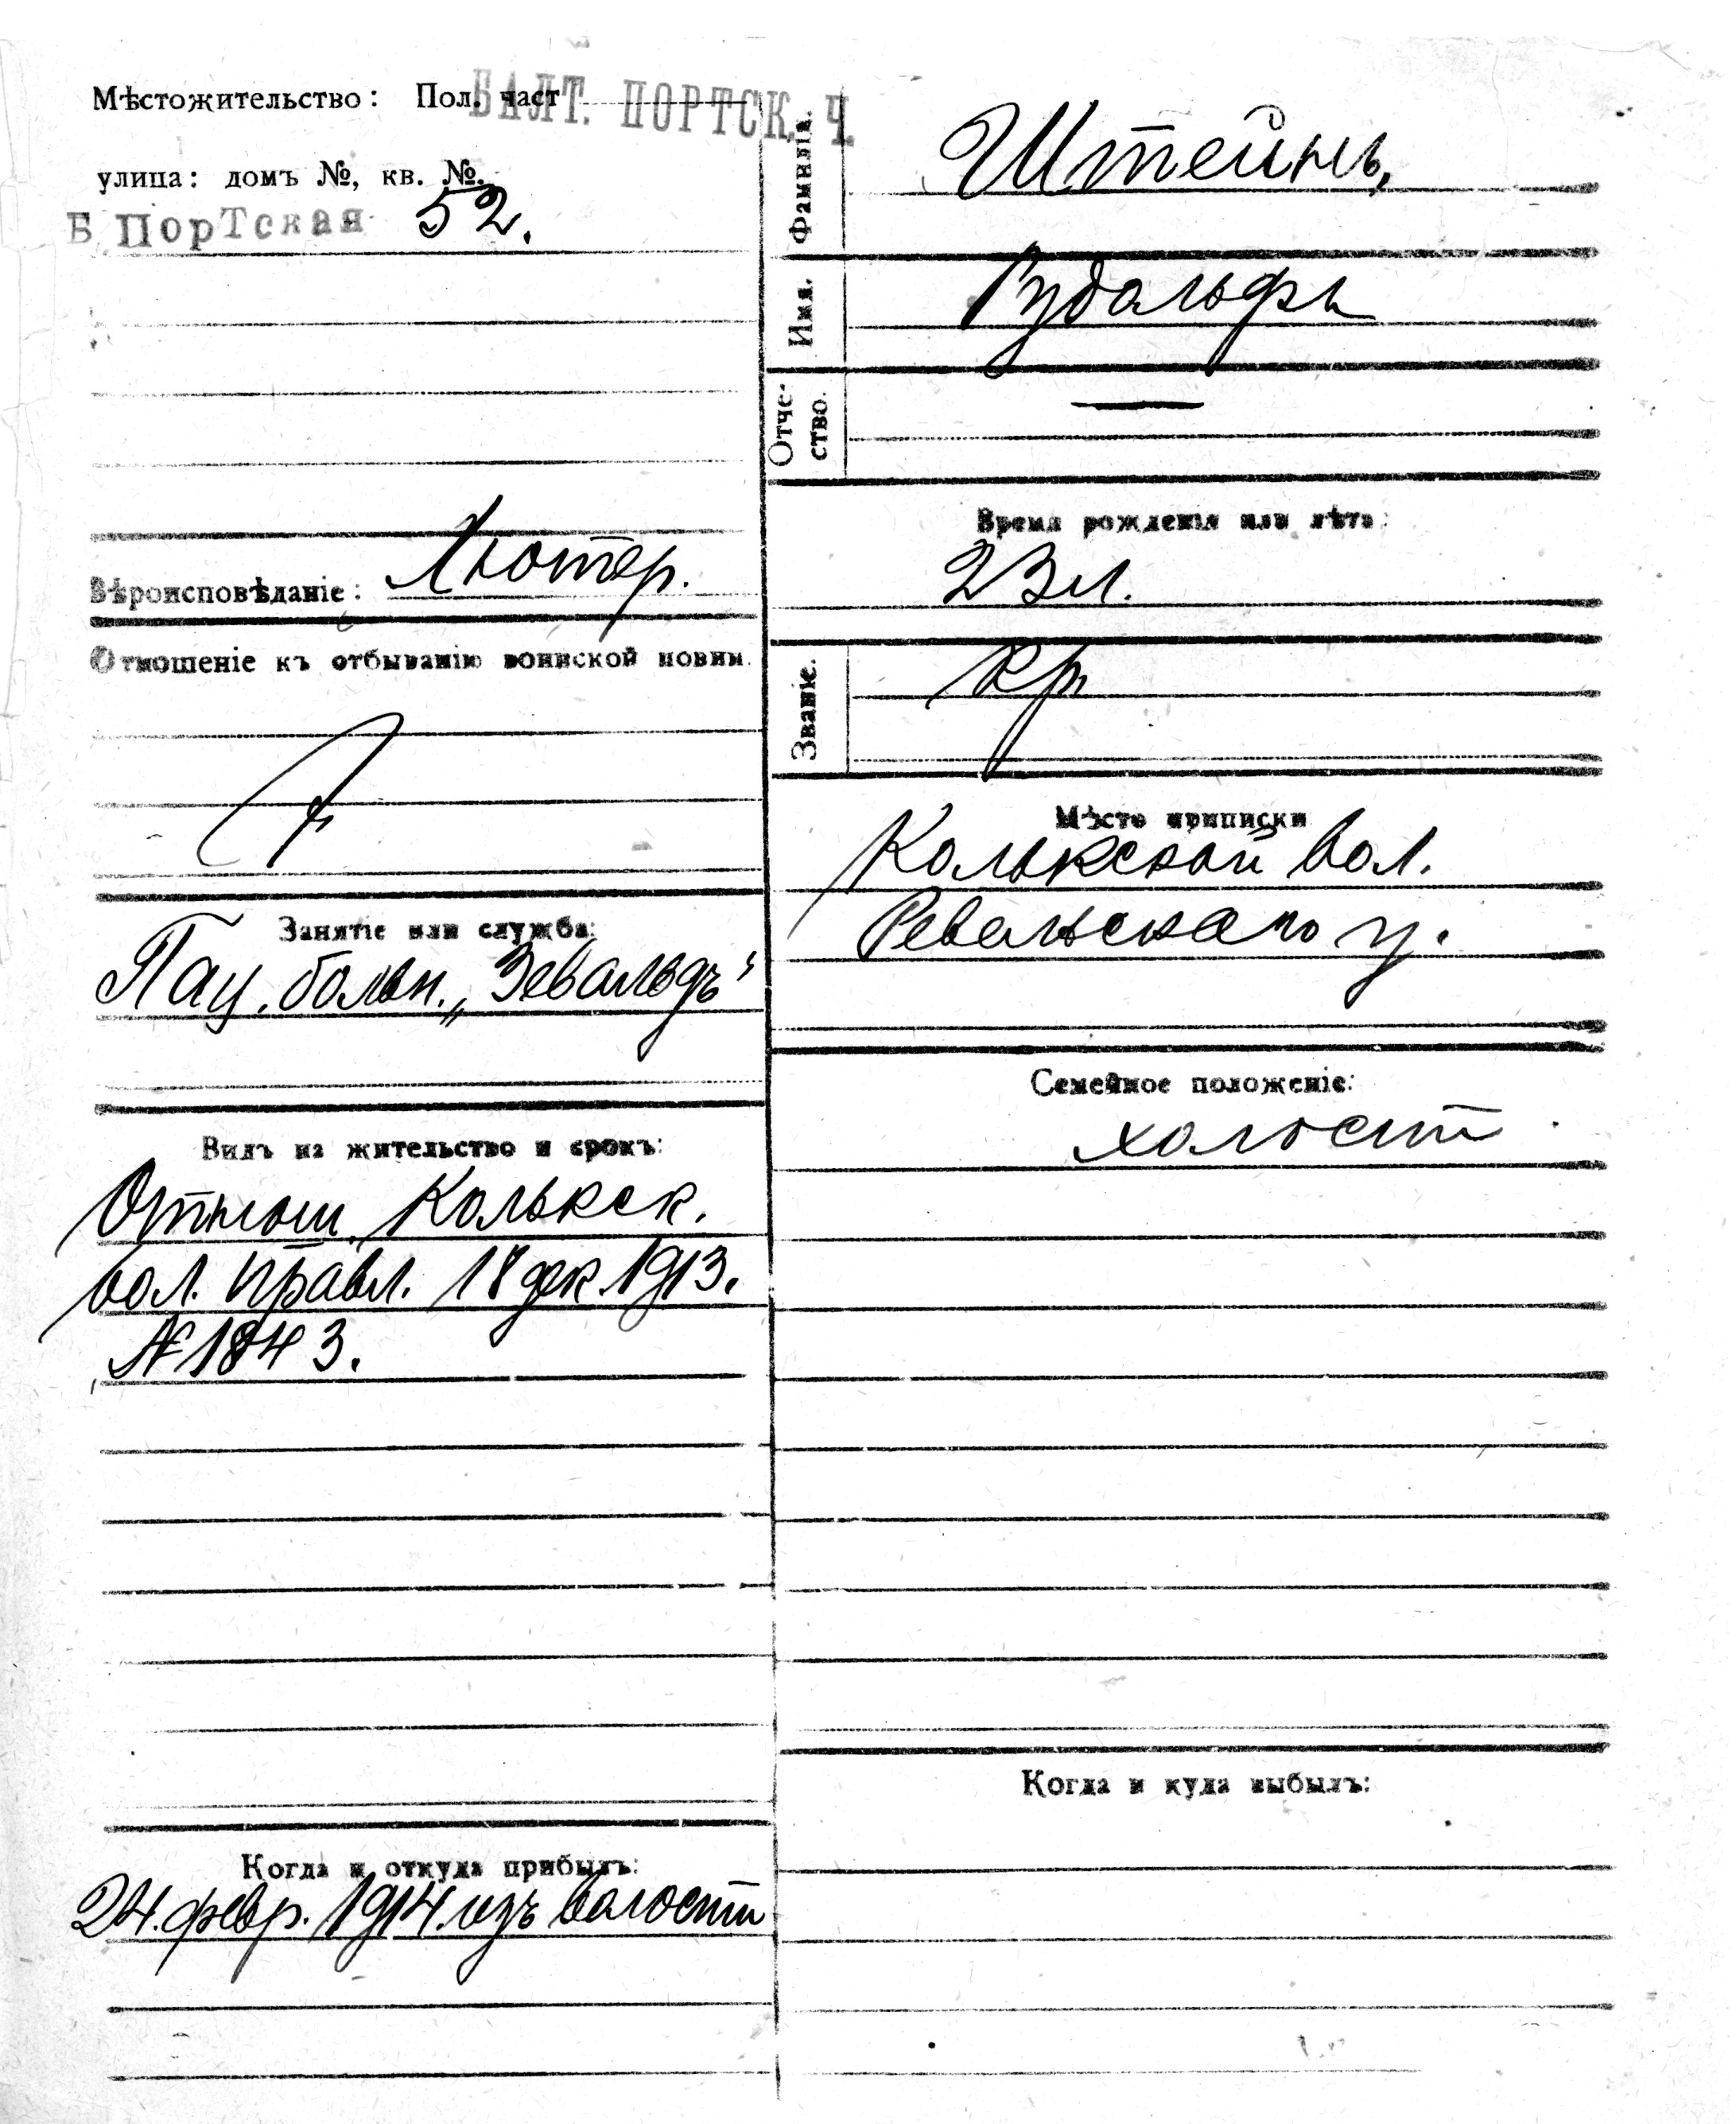 Мѣстожительство: Пол. част БАЛТ. ПОРТСК. Ч.
улица: домъ №, кв. №.
Б ПорТская 52.
Вѣроисповѣданіе: Лютер.
Отношеніе къ отбыванію воинской повин.
Занятіе или служба:
Пац. больн. „Зевальдъ“
Видъ на жительство и срокъ:
Отнош. Колькск.
вол. правл. 18 дек. 1913.
№ 1843.
Когда и откуда прибылъ:
24. февр. 1914. изъ волости
Фамилія. Штейнъ,
Имя. Рудальфъ
Отче-
ство. —
Время рожденія или лѣта:
23 л.
Званіе. Кр
Мѣсто приписки
Колькской вол.
Ревельскаго у.
Семейное положеніе:
холост
Когда и куда выбылъ: